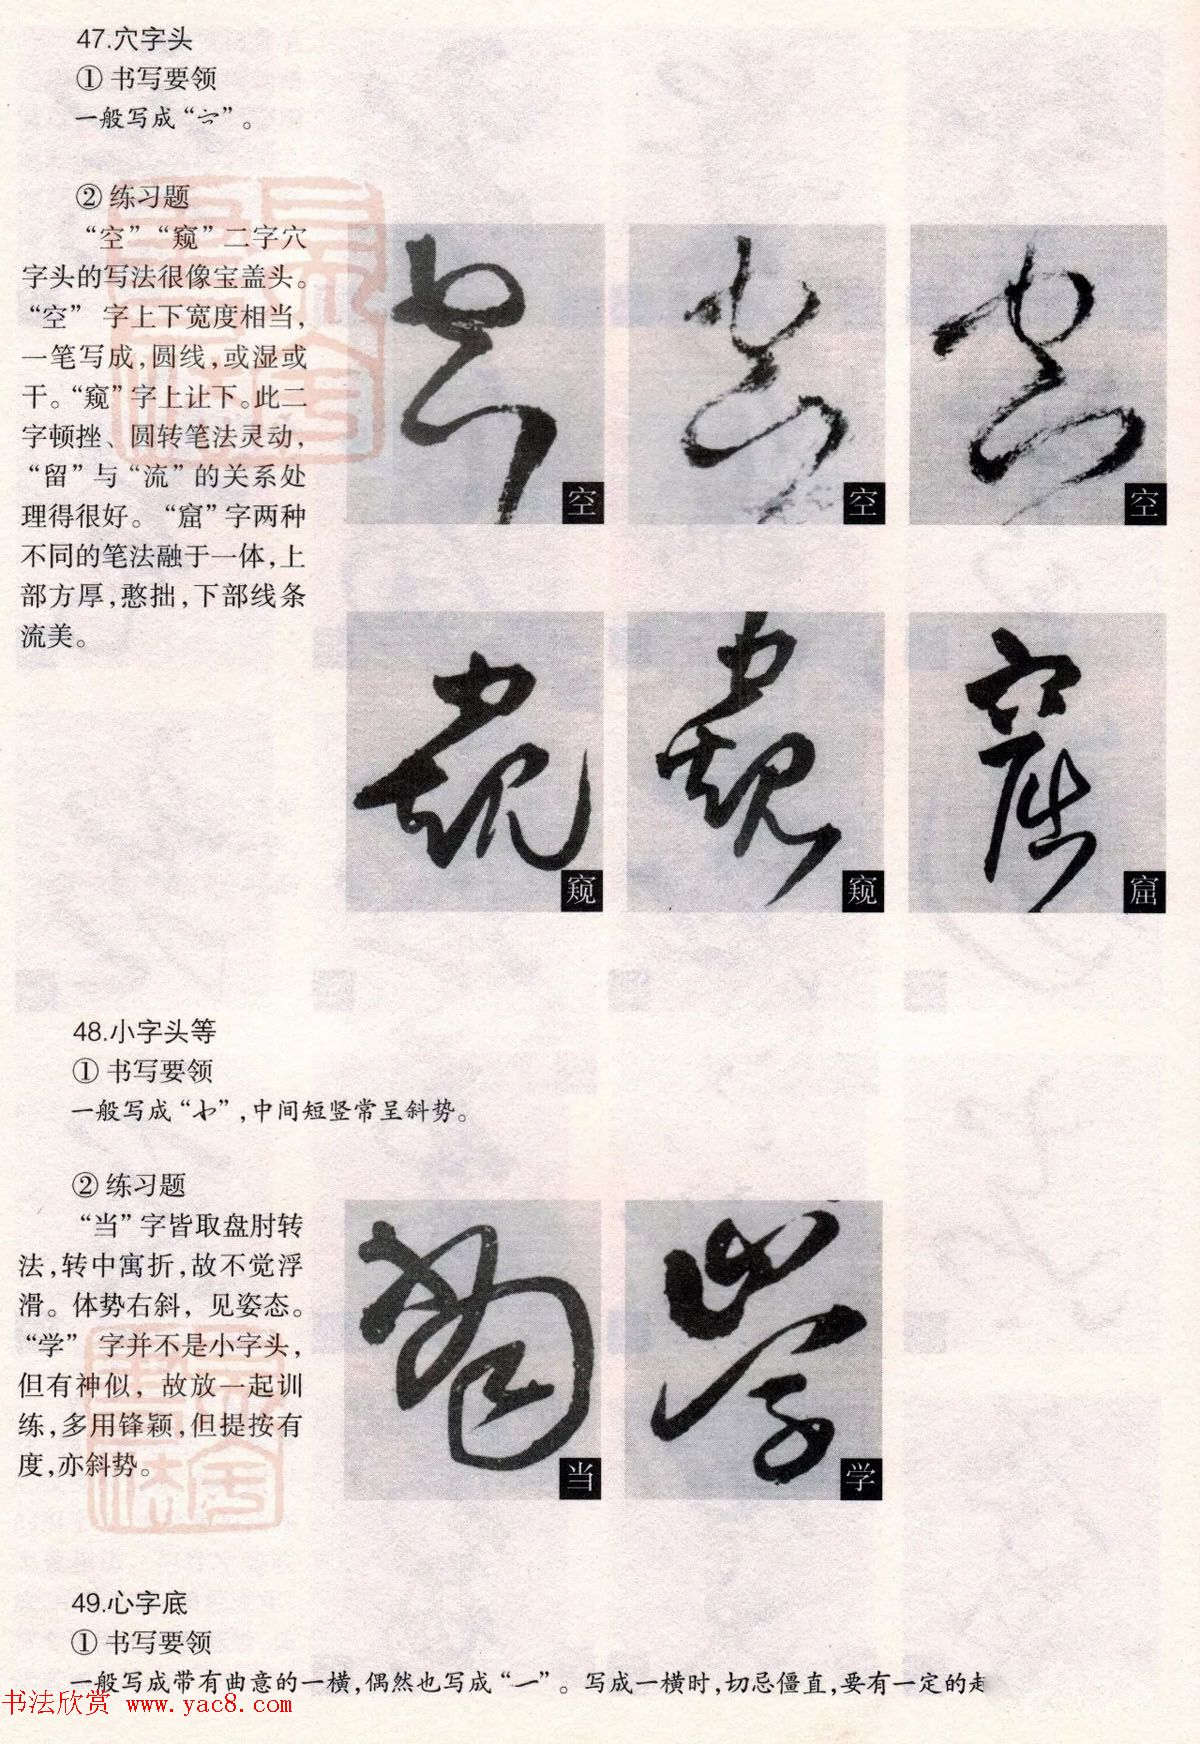 47.穴字头
① 书写要领
一般写成“”。
② 练习题
“空”“窥”二字穴
字头的写法很像宝盖头。
“空” 字上下宽度相当，
一笔写成，圆线，或湿或
干。“窥”字上让下。此二
字顿挫、圆转笔法灵动，
“留”与“流”的关系处
理得很好。“窟”字两种
不同的笔法融于一体，上
部方厚，憨拙，下部线条
流美。
空
空
空
窥
窥
窟
48.小字头等
① 书写要领
一般写成“”，中间短竖常呈斜势。
② 练习题
“当”字皆取盘肘转
法，转中寓折，故不觉浮
滑。体势右斜，见姿态。
“学” 字并不是小字头，
但有神似，故放一起训
练，多用锋颖，但提按有
度，亦斜势。
当
学
49.心字底
① 书写要领
一般写成带有曲意的一横，偶然也写成“”。写成一横时，切忌僵直，要有一定的
书法欣赏 www.yac8.com